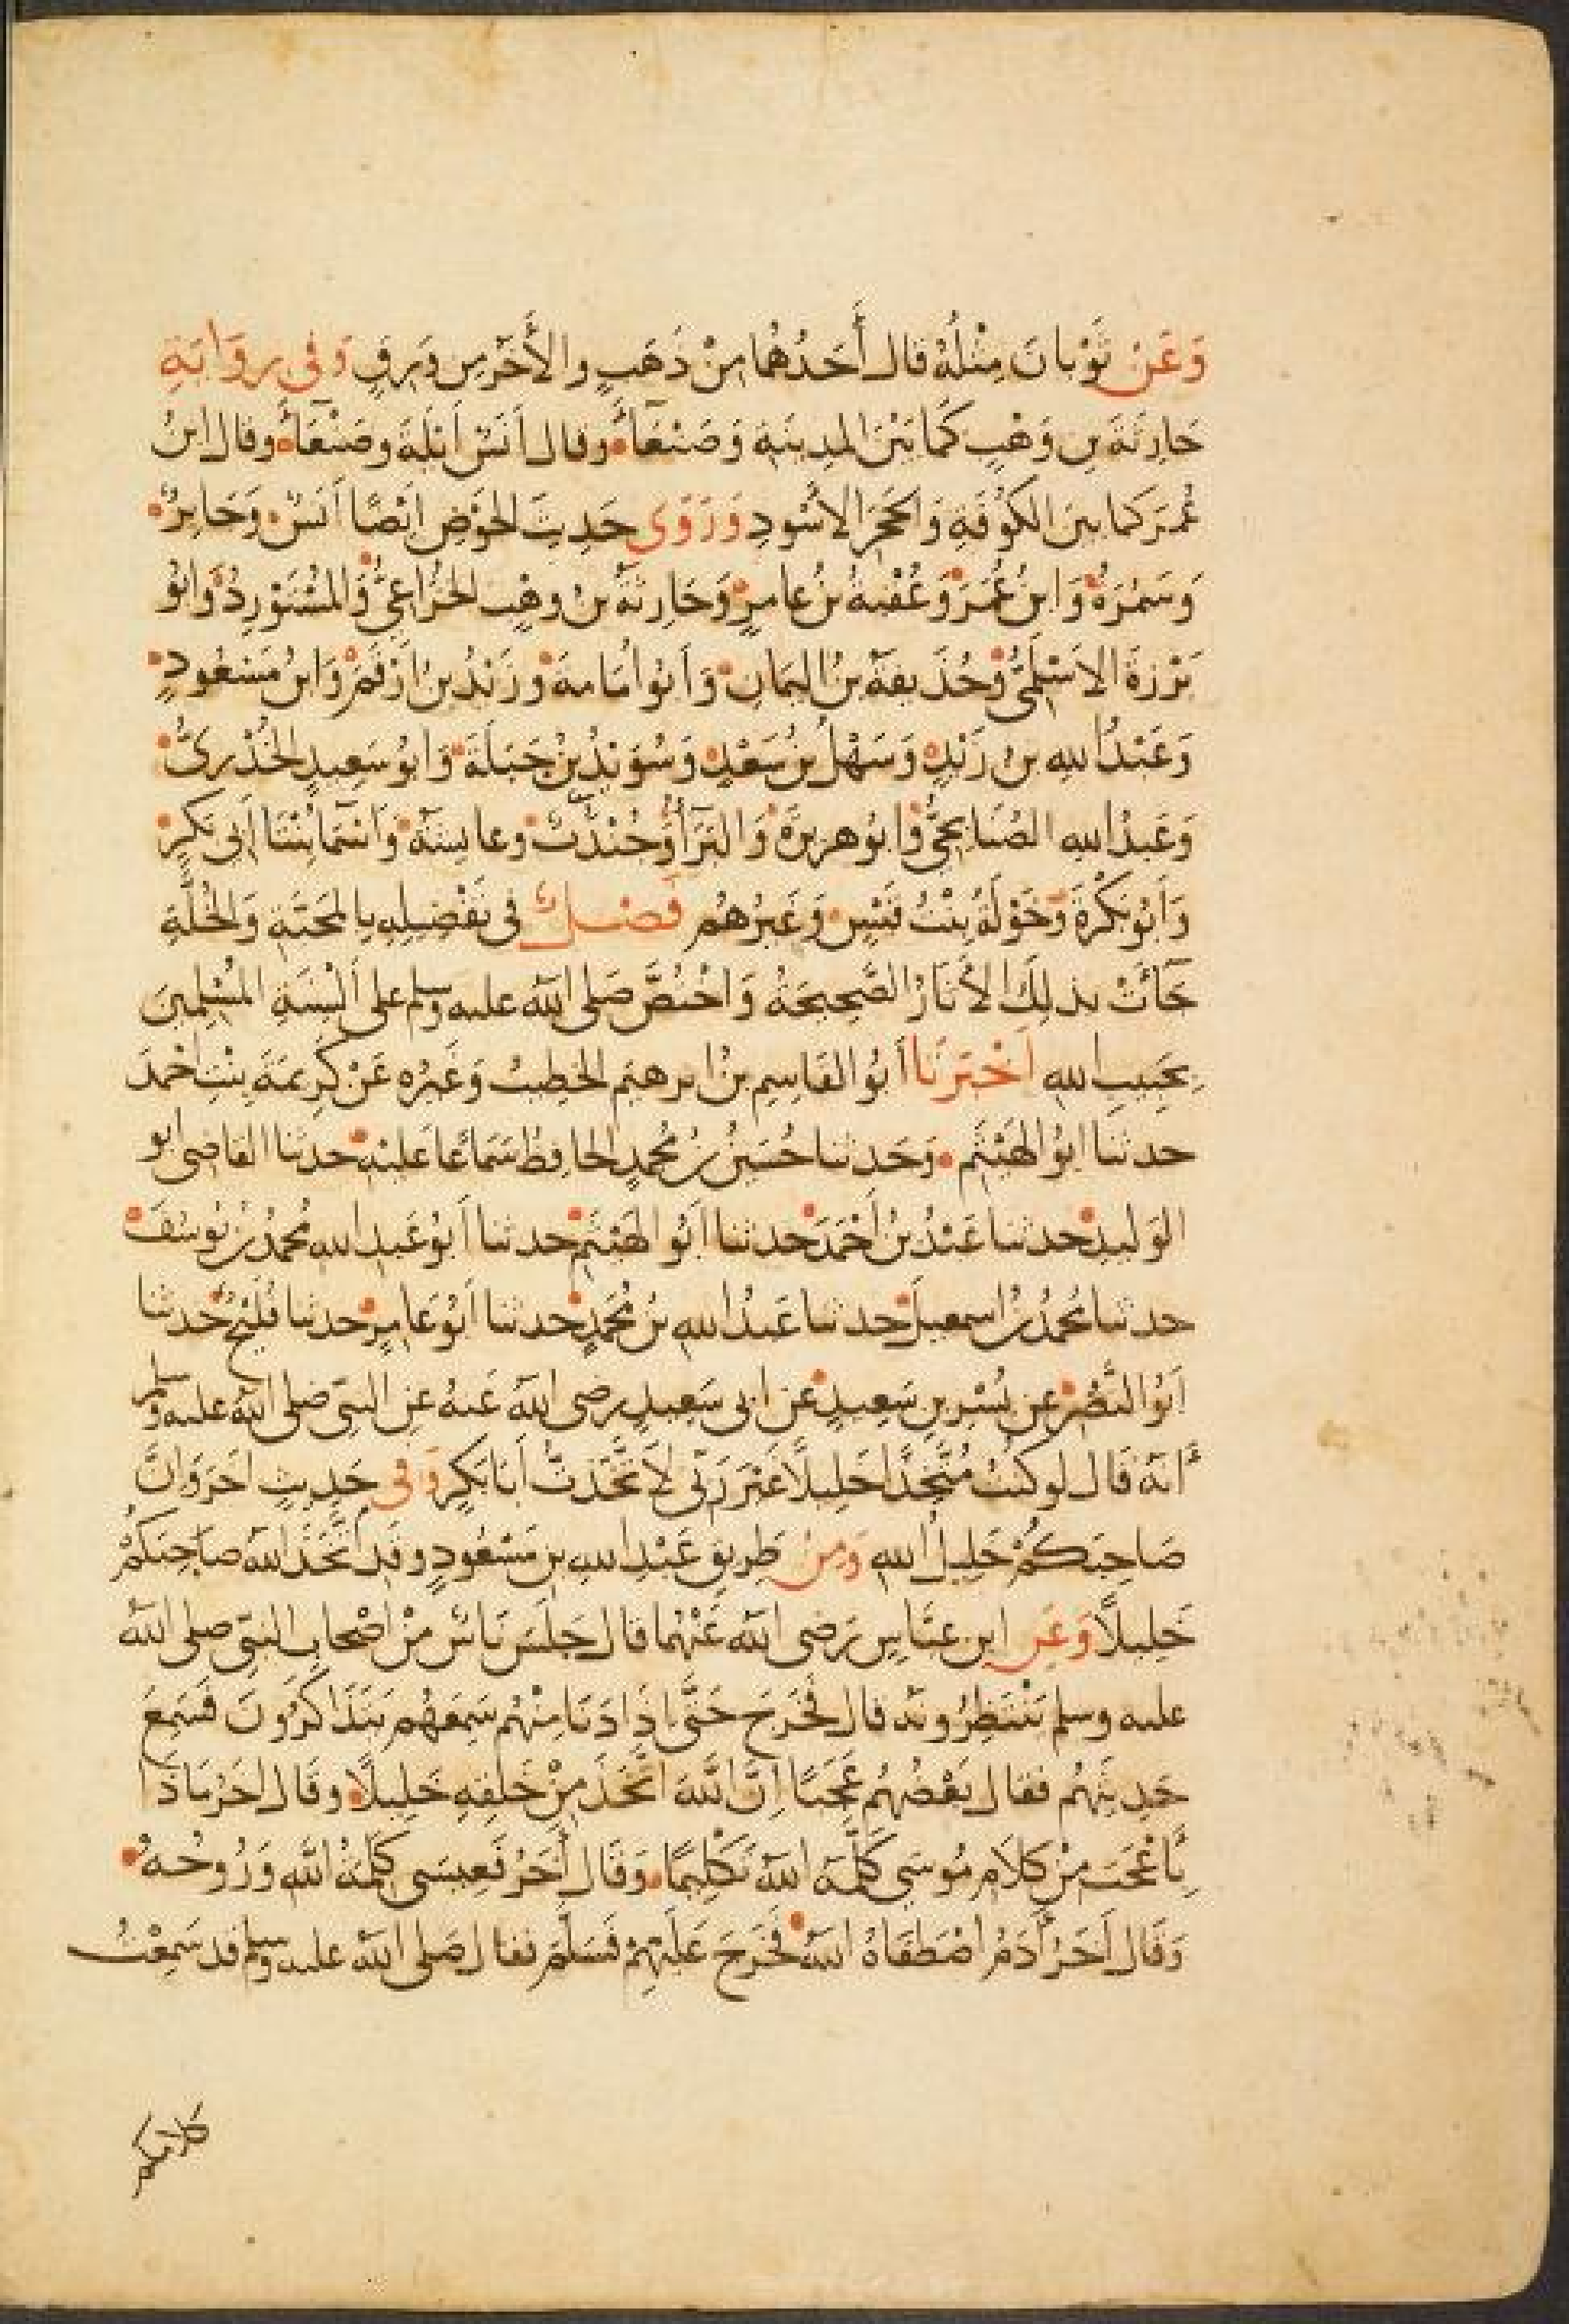 وَعَنْ ثَوْبَانَ مِثْلُهُ قال أَحَدُهُما مِنْ ذَهَبٍ والأَخَرُ مِن وَرِقٍ وَفى رِوَايَةِ
حَارِثَةَ بنِ وَهْبٍ كَمَا بَيْنَ المدِينَةِ وَصَنْعَآءَ وقال أَنَسٌ أَيْلَةَ وصَنْعَآءَ وقال ابنُ
عُمَرَ كما بينَ الكوُفَةِ وَالحَجَرِ الاَسْودِ وَرَوَى حَدِيثَ الحَوْضِ ايْضًا أَنَسٌ وَجَابِرٌ
وَسَمُرَةُ وَابنُ عُمَرَ وَعُقْبَةُ بْنُ عامِرٍ وَحَارِثَةُ بنُ وهْبٍ الخُزَاعِىُّ وَالمُسْتَوْرِدُ وَابُو
بَرْزَةَ الاَسْلَمِىُّ وَحُذَيفَةُ بنُ اليَمَانِ وَأَبُو أُمَامةَ وَزَيْدُ بنُ أَرْقَمَ وَابنُ مَسْعُودٍ
وَعَبْدُ اللهِ بنُ زَيْدٍ وَسَهْلُ بنُ سَعْدٍ وَسُوَيْدُ بنُ جَبَلَةَ وَابو سَعِيدٍ الخُدْرِىُّ
وَعَبدُ اللهِ الصُّنَابِحِىُّ وَابو هرَيرَةَ وَالبَرَآءُ وَجُنْدُبٌ وعايشَةُ وَاسْمَا بِنْتَا اَبى بَكرٍ
وَابُو بَكْرَةَ وَخَوْلَةُ بِنْتُ قَيْسٍ وَغَيْرُهُمْ فصْل فى تَفْضِيلِهِ بالمحَبَّةِ وَالخُلَّةِ
جَآءَتْ بذلِكَ الاَثَارُ الصَّحِيحَةُ وَاخْتُصَّ صَلى اللهُ عليه وسلم على أَلْسِنَةِ المُسْلِمينَ
بِحَبِيبِ اللهِ اَخْبَرَنَا أَبُو القَاسِمِ بنُ ابرهيمَ الخطِيبُ وَغَيرُه عَنْ كَرِيمَةَ بِنْتِ احْمَدَ
حدثنا ابُو الهَيْثَمِ وَحَدثنا حُسَينُ بنُ مُحمدٍ الحافِظُ سَمَاعًا عَلَيْهِ حدثنا القاضى ابو
الوَليدِ حدثنا عَبْدُ بنُ أَحْمَدَ حدثنا ابُو الهَيْثَمِ حدثنا أَبُو عَبدِ اللهِ مُحَمدُ بنُ يُوسُفَ
حدثنا مُحَمدُ بنُ اسمعيلَ حدثنا عَبدُ اللهِ بنُ مُحَمدٍ حدثنا أَبُو عَامِرٍ حدثنا فُلَيْحٌ حدثنا
اَبُو النَّضْرِ عن بُسْرِ بنِ سَعِيدٍ عَن ابى سَعِيدٍ رضى اللهُ عَنهُ عنِ النبىِّ صلى اللهُ عليه وسلم
أَنهُ قَال لو كنْتُ مُتَّخِذًا خَلِيلاً غَيْرَ رَبّى لاَتَّخَذْتُ أَبَا بَكرٍ وَفى حَدِيثٍ اخَرَ وَانَّ
صَاحِبَكُمْ خَلِيلُ اللهِ وَمِنْ طَرِيقِ عَبْدِ اللهِ بنِ مَسْعُودٍ وقَدِ اتَّخَذَ اللهُ صاحِبَكُمْ
خَلِيلاً وَعَنِ ابنِ عبَّاسٍ رَضى اللهُ عَنْهُما قال جَلَسَ نَاسٌ مِنْ أصْحابِ النبىِّ صلى اللهُ
عليه وسلم يَنْتَظِرُونَهُ قال فَخَرَجَ حَتَّى اذِا دَنَا مِنْهُم سَمِعَهُم يَتَذَاكرُونَ فَسَمِعَ
حَدِيثَهُم فقال بَعْضُهُم عَجَبًا اِنَّ اللهَ اتَّخَذَ مِنْ خَلْقِهِ خَلِيلاً وقَال اخَرُ مَاذَا
بِأَعْجَبَ مِنْ كلاَمِ مُوسَى كلَّمَهُ اللهُ تَكْلِيمًا وَقَال أخَرُ فَعِيسَى كلِمَةُ اللهِ وَرُوحُهُ
وَقَال اَخَرُ أَدَمُ اصْطَفَاهُ اللهُ فَخَرَجَ عَلَيْهِمْ فَسَلَّمَ فقال صَلى اللهُ عليه وسلم قد سَمِعْتُ
كلامكم